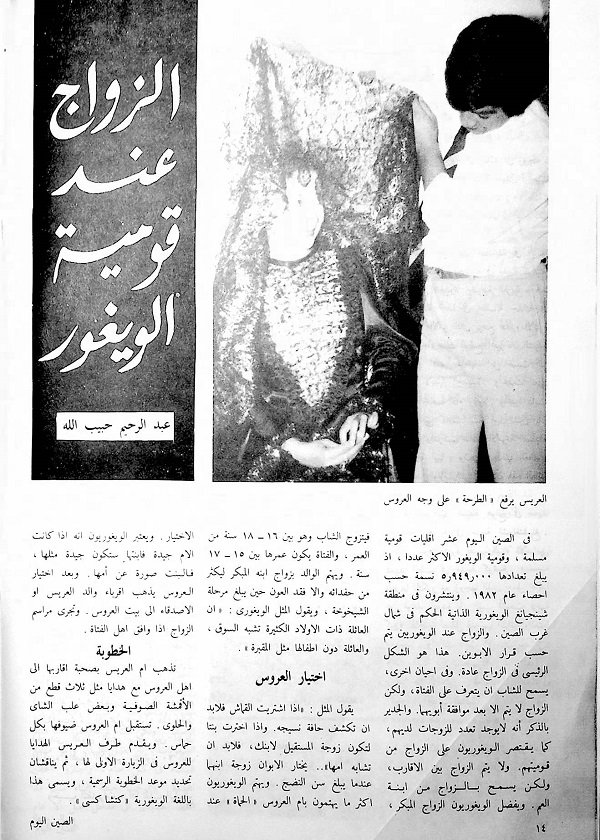 الزواج
عند
قومية
الويغور
عبد الرحيم حبيب الله
العريس يرفع «الطرحة» على وجه العروس
فى الصين اليوم عشر اقليات قومية
مسلمة ، وقومية الويغور الاكثر عددا ، اذ
يبلغ تعدادها ٥٫٩٤٩٫٠٠٠ نسمة حسب
احصاء عام ١٩٨٢ . وينتشرون فى منطقة
شينجيانغ الويغورية الذاتية الحكم فى شمال
غرب الصين . والزواج عند الويغوريين يتم
حسب قرار الابوين . هذا هو الشكل
الرئيسى فى الزواج عادة. وفى احيان اخرى،
يسمح للشاب ان يتعرف على الفتاة، ولكن
الزواج لا يتم الا بعد موافقة أبويهما. والجدير
بالذكر أنه لايوجد تعدد للزوجات لديهم،
كما يقتصر الويغوريون على الزواج من
قوميتهم. ولا يتم الزواج بين الاقارب،
ولكن يسمح بالزواج من ابنة
العم. ويفضل الويغوريون الزواج المبكر،
فيتزوج الشاب وهو بين ١٦ – ١٨ سنة من
العمر ، والفتاة يكون عمرها بين ١٥ – ١٧
سنة . ويهتم الوالد بزواج ابنه المبكر ليكثر
من حفدائه والا فقد العون حين يبلغ مرحلة
الشيخوخة ، ويقول المثل الويغورى : «ان
العائلة ذات الاولاد الكثيرة تشبه السوق ،
والعائلة دون اطفالها مثل المقبرة» .
اختيار العروس
يقول المثل : «اذا اشتريت القماش فلابد
ان تكشف حافة نسيجه. واذا اخترت بنتا
لتكون زوجة المستقبل لابنك، فلابد ان
تشابه امها».. يختار الابوان زوجة ابنهما
عندما يبلغ سن النضج . ويهتم الويغوريون
اكثر ما يهتمون بام العروس «الحماة» عند
الاختيار. ويعتبر الويغوريون انه اذا كانت
الام جيدة فابنتها ستكون جيدة مثلها،
فالبنت صورة عن أمها. وبعد اختيار
العروس يذهب اقرباء والد العريس او
الاصدقاء الى بيت العروس. وتجرى مراسم
الزواج اذا وافق اهل الفتاة.
الخطوبة
تذهب ام العريس بصحبة اقاربها الى
اهل العروس مع هدايا مثل ثلاث قطع من
الأقمشة الصوفية وبعض علب الشاى
والحلوى. تستقبل ام العروس ضيوفها بكل
حماس. ويقدم طرف العريس الهدايا
للعروس فى الزيارة الاولى لها، ثم يناقشان
تحديد موعد الخطوبة الرسمية ، ويسمى هذا
باللغة الويغورية «كتشاكسى» .
الصين اليوم
١٤